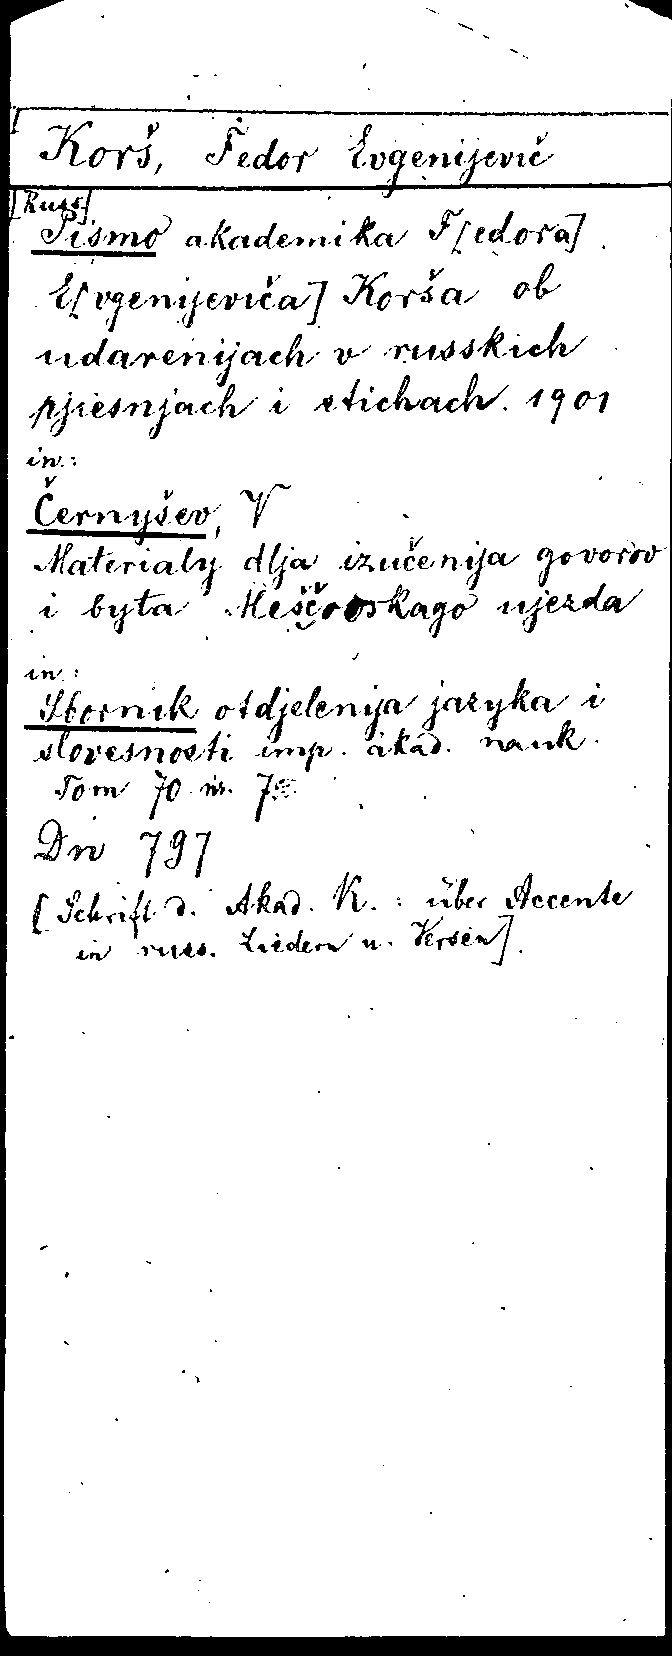 Korš, Fedor Evgenijevič
[Russ]
Pismo akademika F[edora]
E[vgenijeviča] Korša ob
udarenijach v russkich
pjiesnjach i stichach. 1901
in:
Černyšev, V
Materialy dlja izučenija govorov
i byta Meščovskago ujezda
in:
Sbornik otdjelenija jazyka i
slovesnosti imp. akad. nauk.
Tom 70 nr. 7
Dn 797
[Schrift d. Akad. K.: über Accente
in russ. Liedern u. Versen].